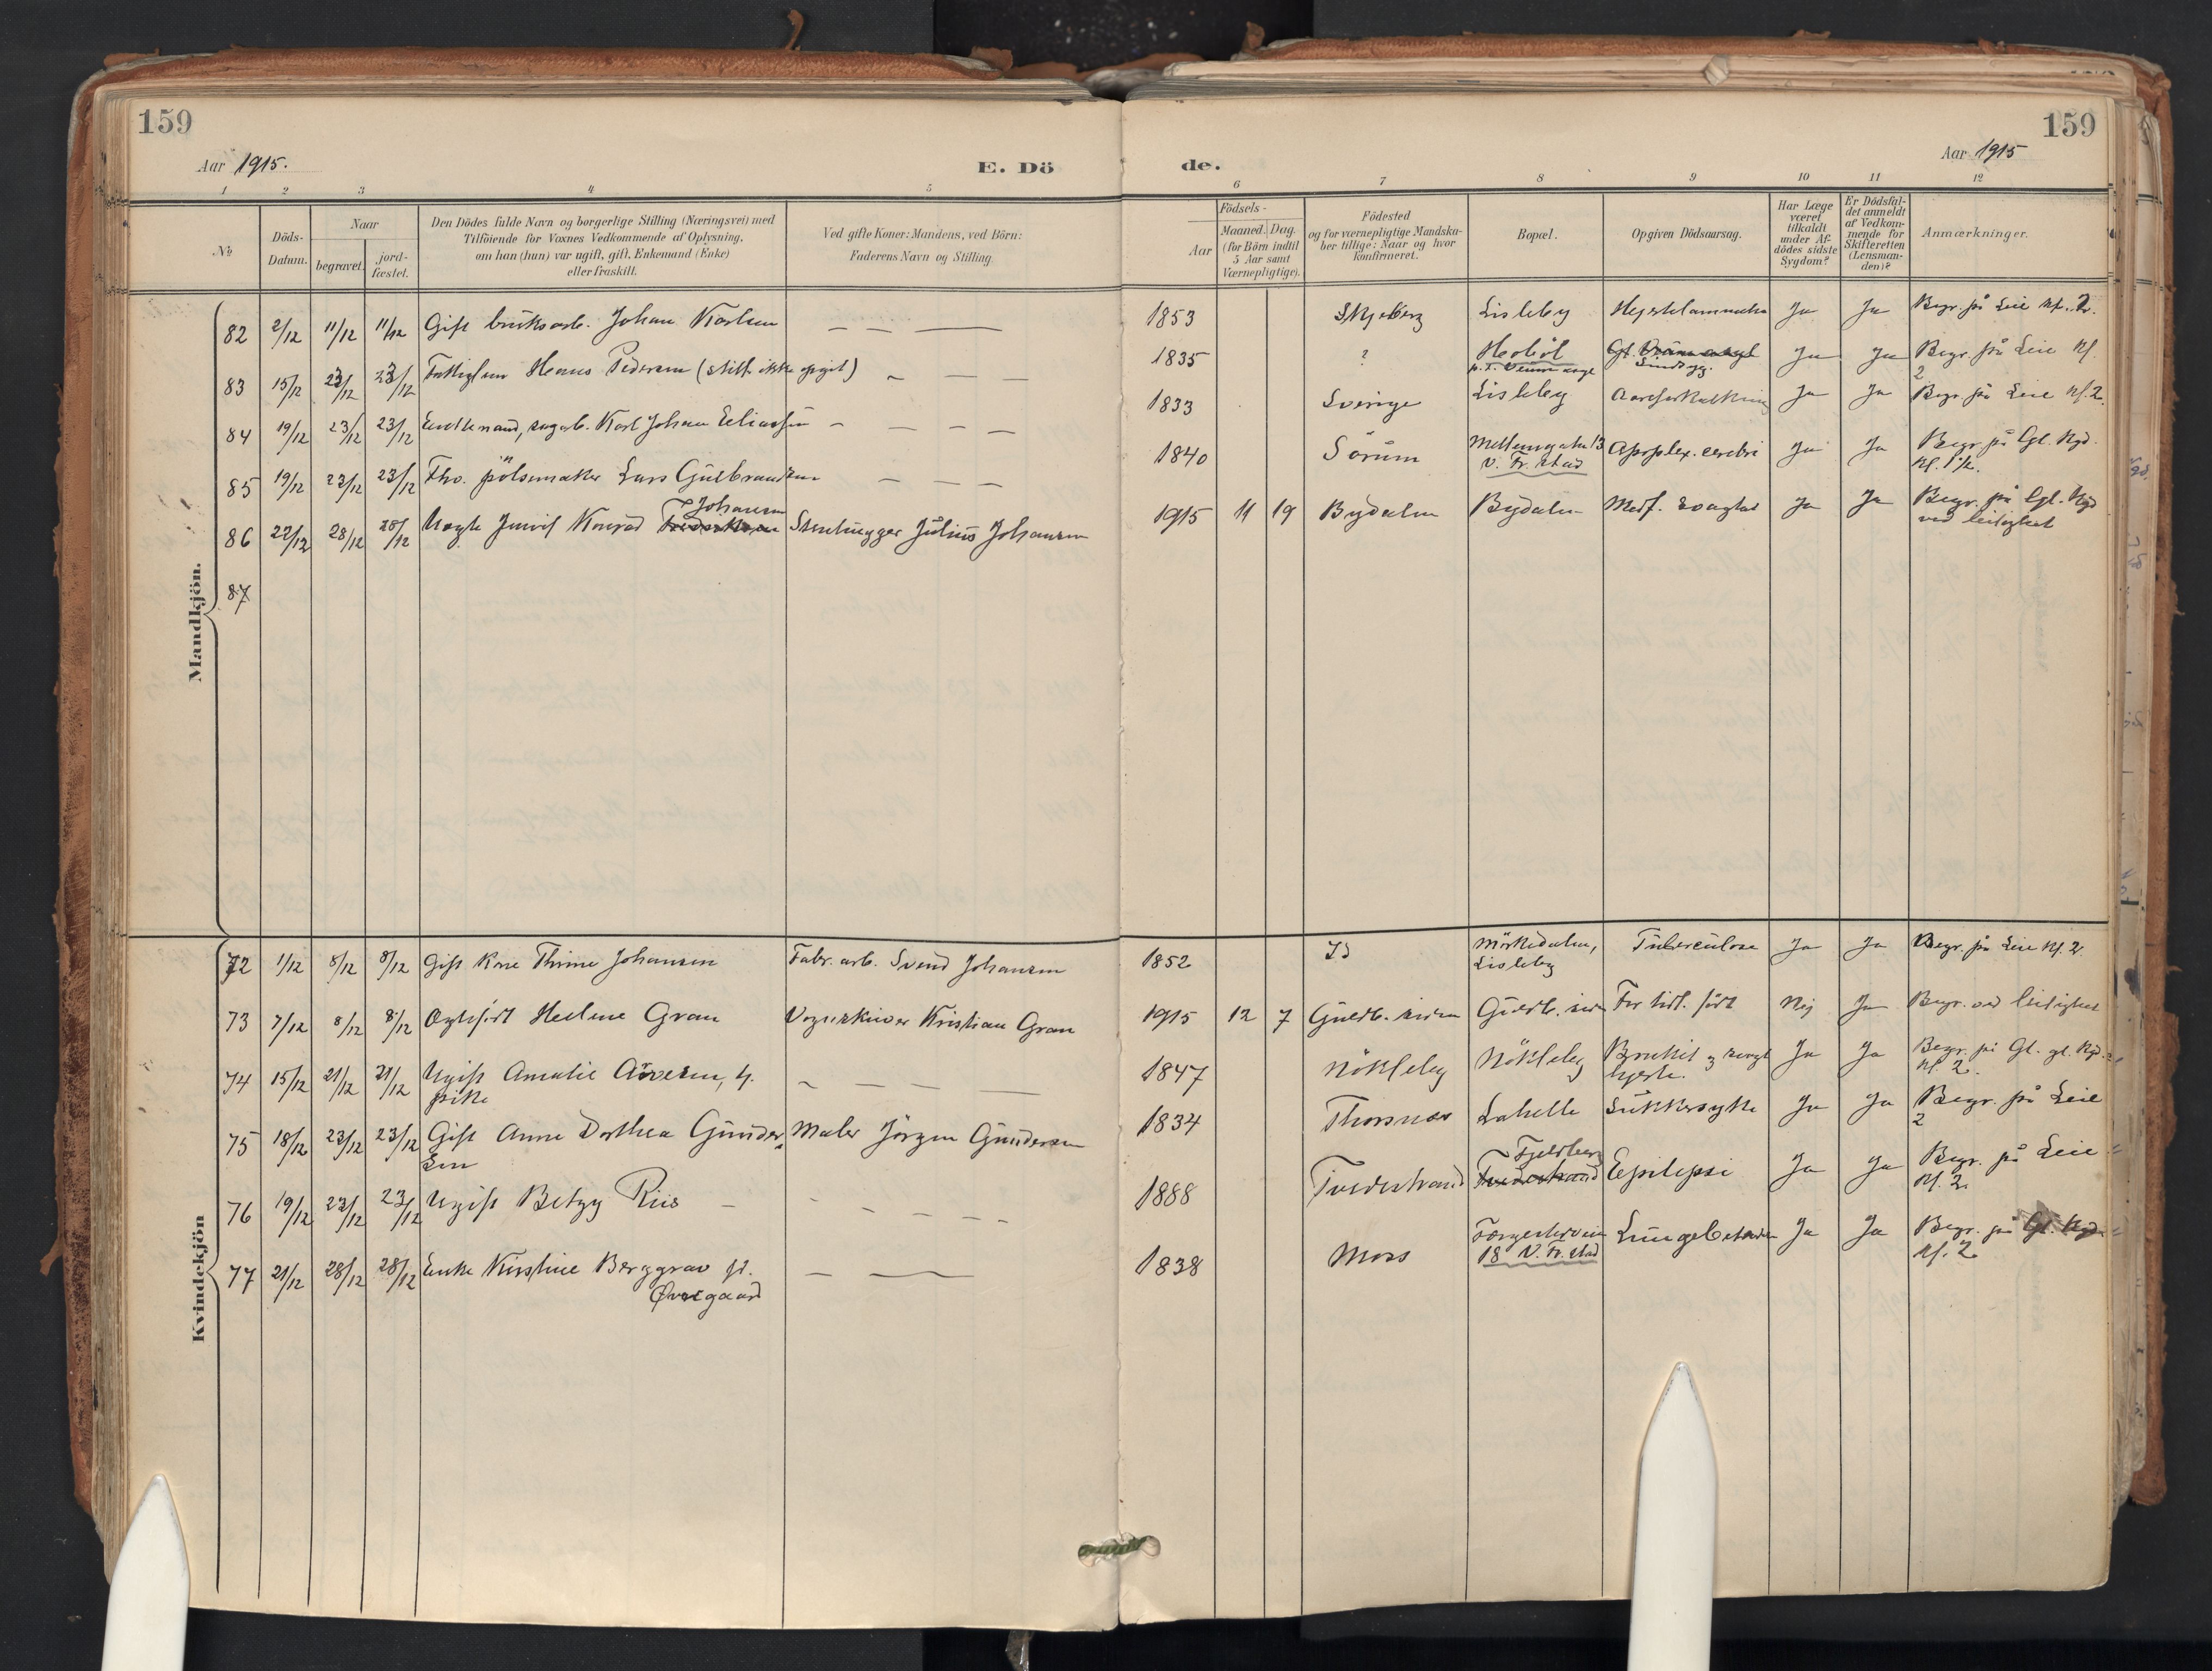 159
159
Aar 1915.
E. Dö
de.
Aar 1915
1 2 3 4 5 6 7 8 9 10 11 12
No
Döds-
Datum.
Naar
begravet.
jord-
fæstet.
Den Dödes fulde Navn og borgerlige Stilling (Næringsvei) med
Tilföiende for Voxnes Vedkommende af Oplysning,
om han (hun) var ugift, gift, Enkemand (Enke)
eller fraskilt.
Ved gifte Koner: Mandens, ved Börn:
Faderens Navn og Stilling.
Aar
Födsels-
Maaned. Dag.
(for Börn indtil
5 Aar samt
Værnepligtige).
Födested
og for værnepligtige Mandska-
ber tillige: Naar og hvor
konfirmeret.
Bopæl.
Opgiven Dödsaarsag.
Har Læge
været
tilkaldt
under Af-
dödes sidste
Sygdom?
Er Dödsfal-
det anmeldt
af Vedkom-
mende for
Skifteretten
(Lensman-
den)?
Anmærkninger.
Mandkjön.
82 2/12 11/12 11/12 Gift bruksarb. Johan Karlsen — — — 1853 Skjeberg Lisleby Ja Ja Begr. på Leie kl. 2.
83 15/12 23/12 23/12 Fattiglem Hans Pedersen (still. ikke opgit) — — — 1835 ? Hobøl Ja Ja Begr. på Leie kl.
2
84 19/12 23/12 23/12 Enkemand, sagarb. Karl Johan Eliassen — — — — 1833 Sverige Lisleby Aareforkalkning Ja Ja Begr. på Leie kl. 2.
85 19/12 23/12 23/12 Fhv. pölsemaker Lars Gulbrandsen — — — 1840 Sörum 13 Apoplex. cerebri Ja Ja Begr. på Gl. Kgd.
V. Fr.stad
Johansen
86 22/12 28/12 28/12 Uegte Konrad Stenhugger Julius Johansen 1915 11 19 Bydalen Bydalen Medf. svaghet Ja Ja Begr. på Gl. Kgd
ved leilighet
87
Kvindekjön
72 1/12 8/12 8/12 Gift kone Thrine Johansen Fabr. arb. Svend Johansen 1852 Id Mörkedalen,
Lisleby Tuberculose Ja Ja Begr. på Leie kl. 2.
73 7/12 8/12 8/12 Helene Gran Kristian Gran 1915 12 7 For tidl. født Nei Ja Begr. ved leilighet
74 15/12 21/12 21/12 Ugift Amalie
pike — — — — 1847 Nökleby Nökleby Bronkit og svagt
hjerte. Ja Ja Begr. på Gl. gl. Kgd.
kl. 2.
75 18/12 23/12 23/12 Gift Anne Dorthea Gunder-
sen Maler Jörgen Gundersen 1834 Thorsnes Lahelle Sukkersyke Ja Ja Begr. på Leie
2
Fjeldberg
76 19/12 23/12 23/12 Ugift Betzy Riis — — — — — 1888 Tvedestrand Tvedestrand Epilepsi Ja Ja Begr. på Leie
kl. 2.
77 21/12 28/12 28/12 Enke Kirstine Berggrav f.
Øvregaard — — 1838 Moss
18 V. Fr.stad Lungebetændelse Ja Ja Begr. på Gl. Kgd.
kl. 2